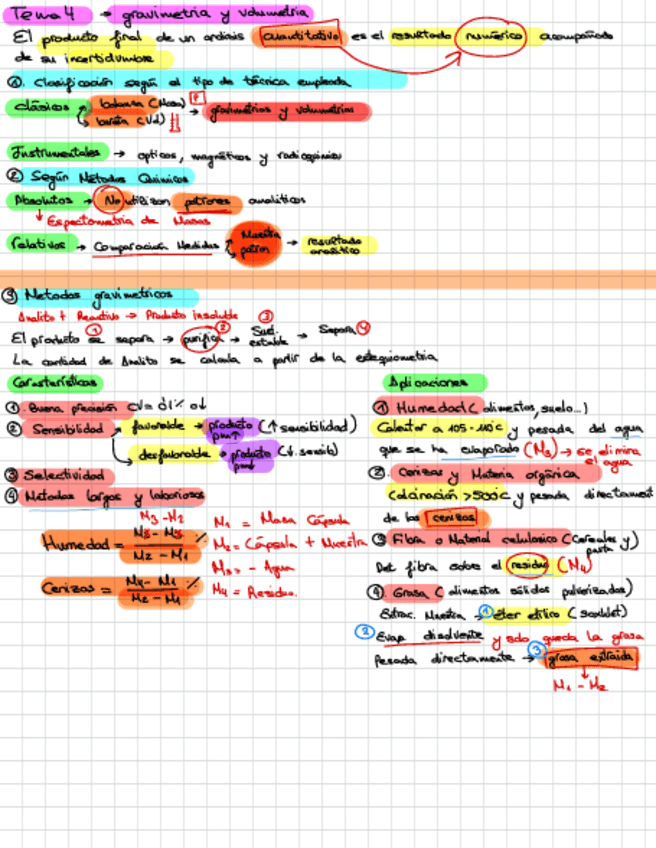 Tema 4 → gravimetría y volumetría
El producto final de un análisis cuantitativo es el resultado numérico acompañado
de su incertidumbre
①. Clasificación según el tipo de técnica empleada
Clásicos balanza (Masa)
bureta (Vol) → gravimetrías y volumetrías
Instrumentales → opticos, magnéticos y radioquimic
② Según Métodos Químicos
Absolutos → No utilizan patrones analíticos
↳ Espectometria de Masas
Relativos → Comparación Medidas Muestra
patron → resultado
analítico
③ Metodos gravimetricos
Analito + Reactivo → Producto insoluble
El producto se ① separa → purifica ② → Sust. estable ③ → Separa ④
La cantidad de Analito se calcula a partir de la estequiometria
Características
①. Buena precisión CV = 0'1 % o ↓
② Sensibilidad favorable → producto pm↑ (↑ sensibilidad)
desfavorable → producto pm↓ (↓ sensib)
③ Selectividad
④ Metodos largos y laboriosos
M3 - M2
Humedad = / M2 - M1 %
Cenizas = M4 - M1 / M2 - M1 %
M1 = Masa Cápsula
M2 = Cápsula + Muestra
M3 = - Agua
M4 = Residuo.
Aplicaciones
① Humedad (alimentos, suelo...)
Calentar a 105 - 110°C y pesada del agua
que se ha evaporado (M3) → se elimina
el agua
②. Cenizas y Materia orgánica
Calcinación >500°C y pesada directament
de las cenizas
③ Fibra o Material celulosico (Cereales y)
pasta
Det fibra sobre el residuo (M4)
④. Grasa (alimentos sólidos pulverizados)
Extrac. Muestra → ① éter etílico (soxhlet)
② Evap disolvente y sdo queda la grasa
Pesada directamente → ③ grasa extraída
M1 - M2